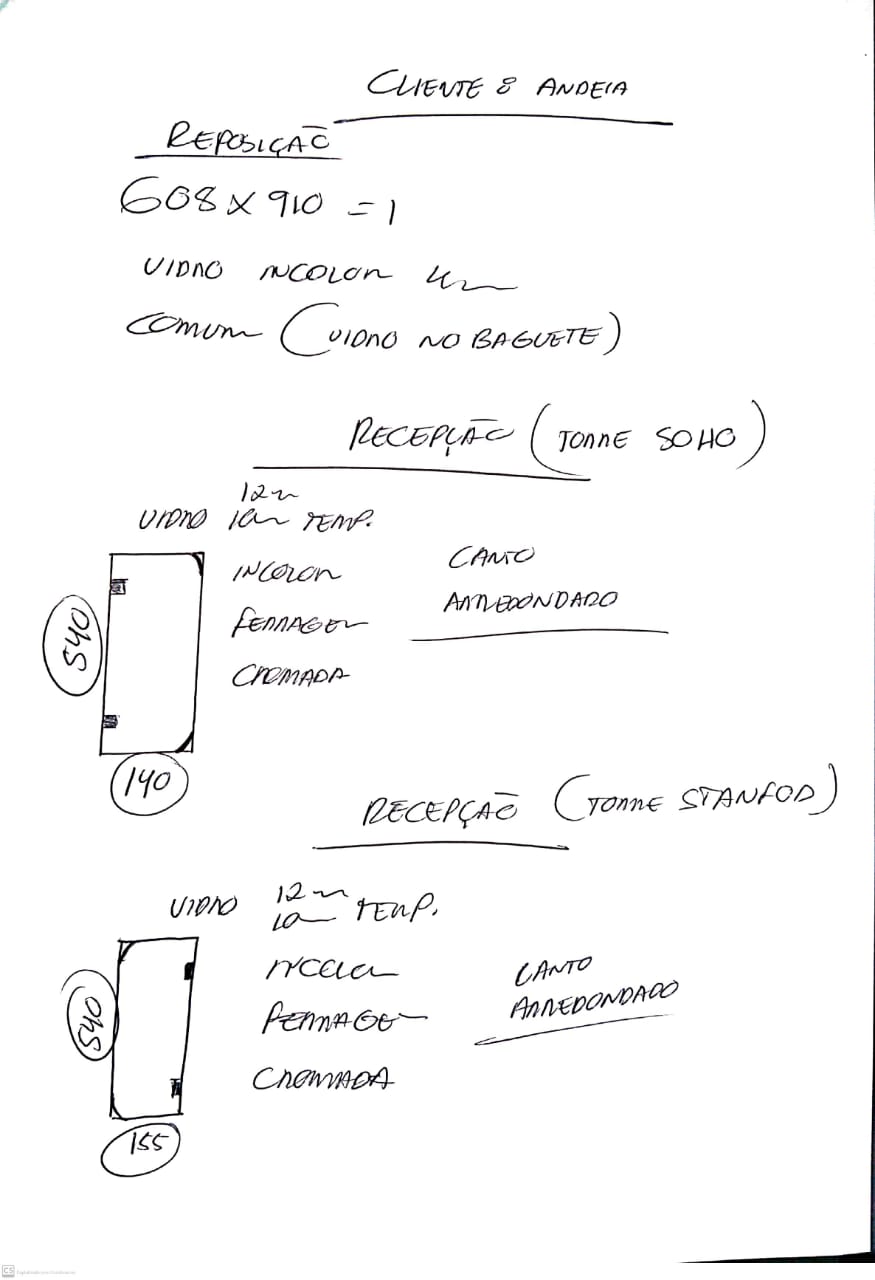 CLIENTE: ANDEIA
REPOSIÇÃO
608 X 910 = 1
VIDRO INCOLOR 4m
COMUM (VIDRO NO BAGUETE)
RECEPÇÃO (TORRE SOHO)
12m
VIDRO 10m TEMP.
INCOLOR
FERRAGEM
CROMADA
CANTO
ARREDONDADO
540
140
RECEPÇÃO (TORRE STANFOD)
12m
VIDRO 10m TEMP.
INCOLOR
FERRAGEM
CROMADA
CANTO
ARREDONDADO
540
155
CS